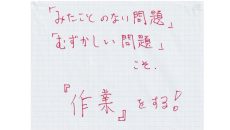 「みたことのない問題」
「むずかしい問題」
こそ、
『作業』をする!